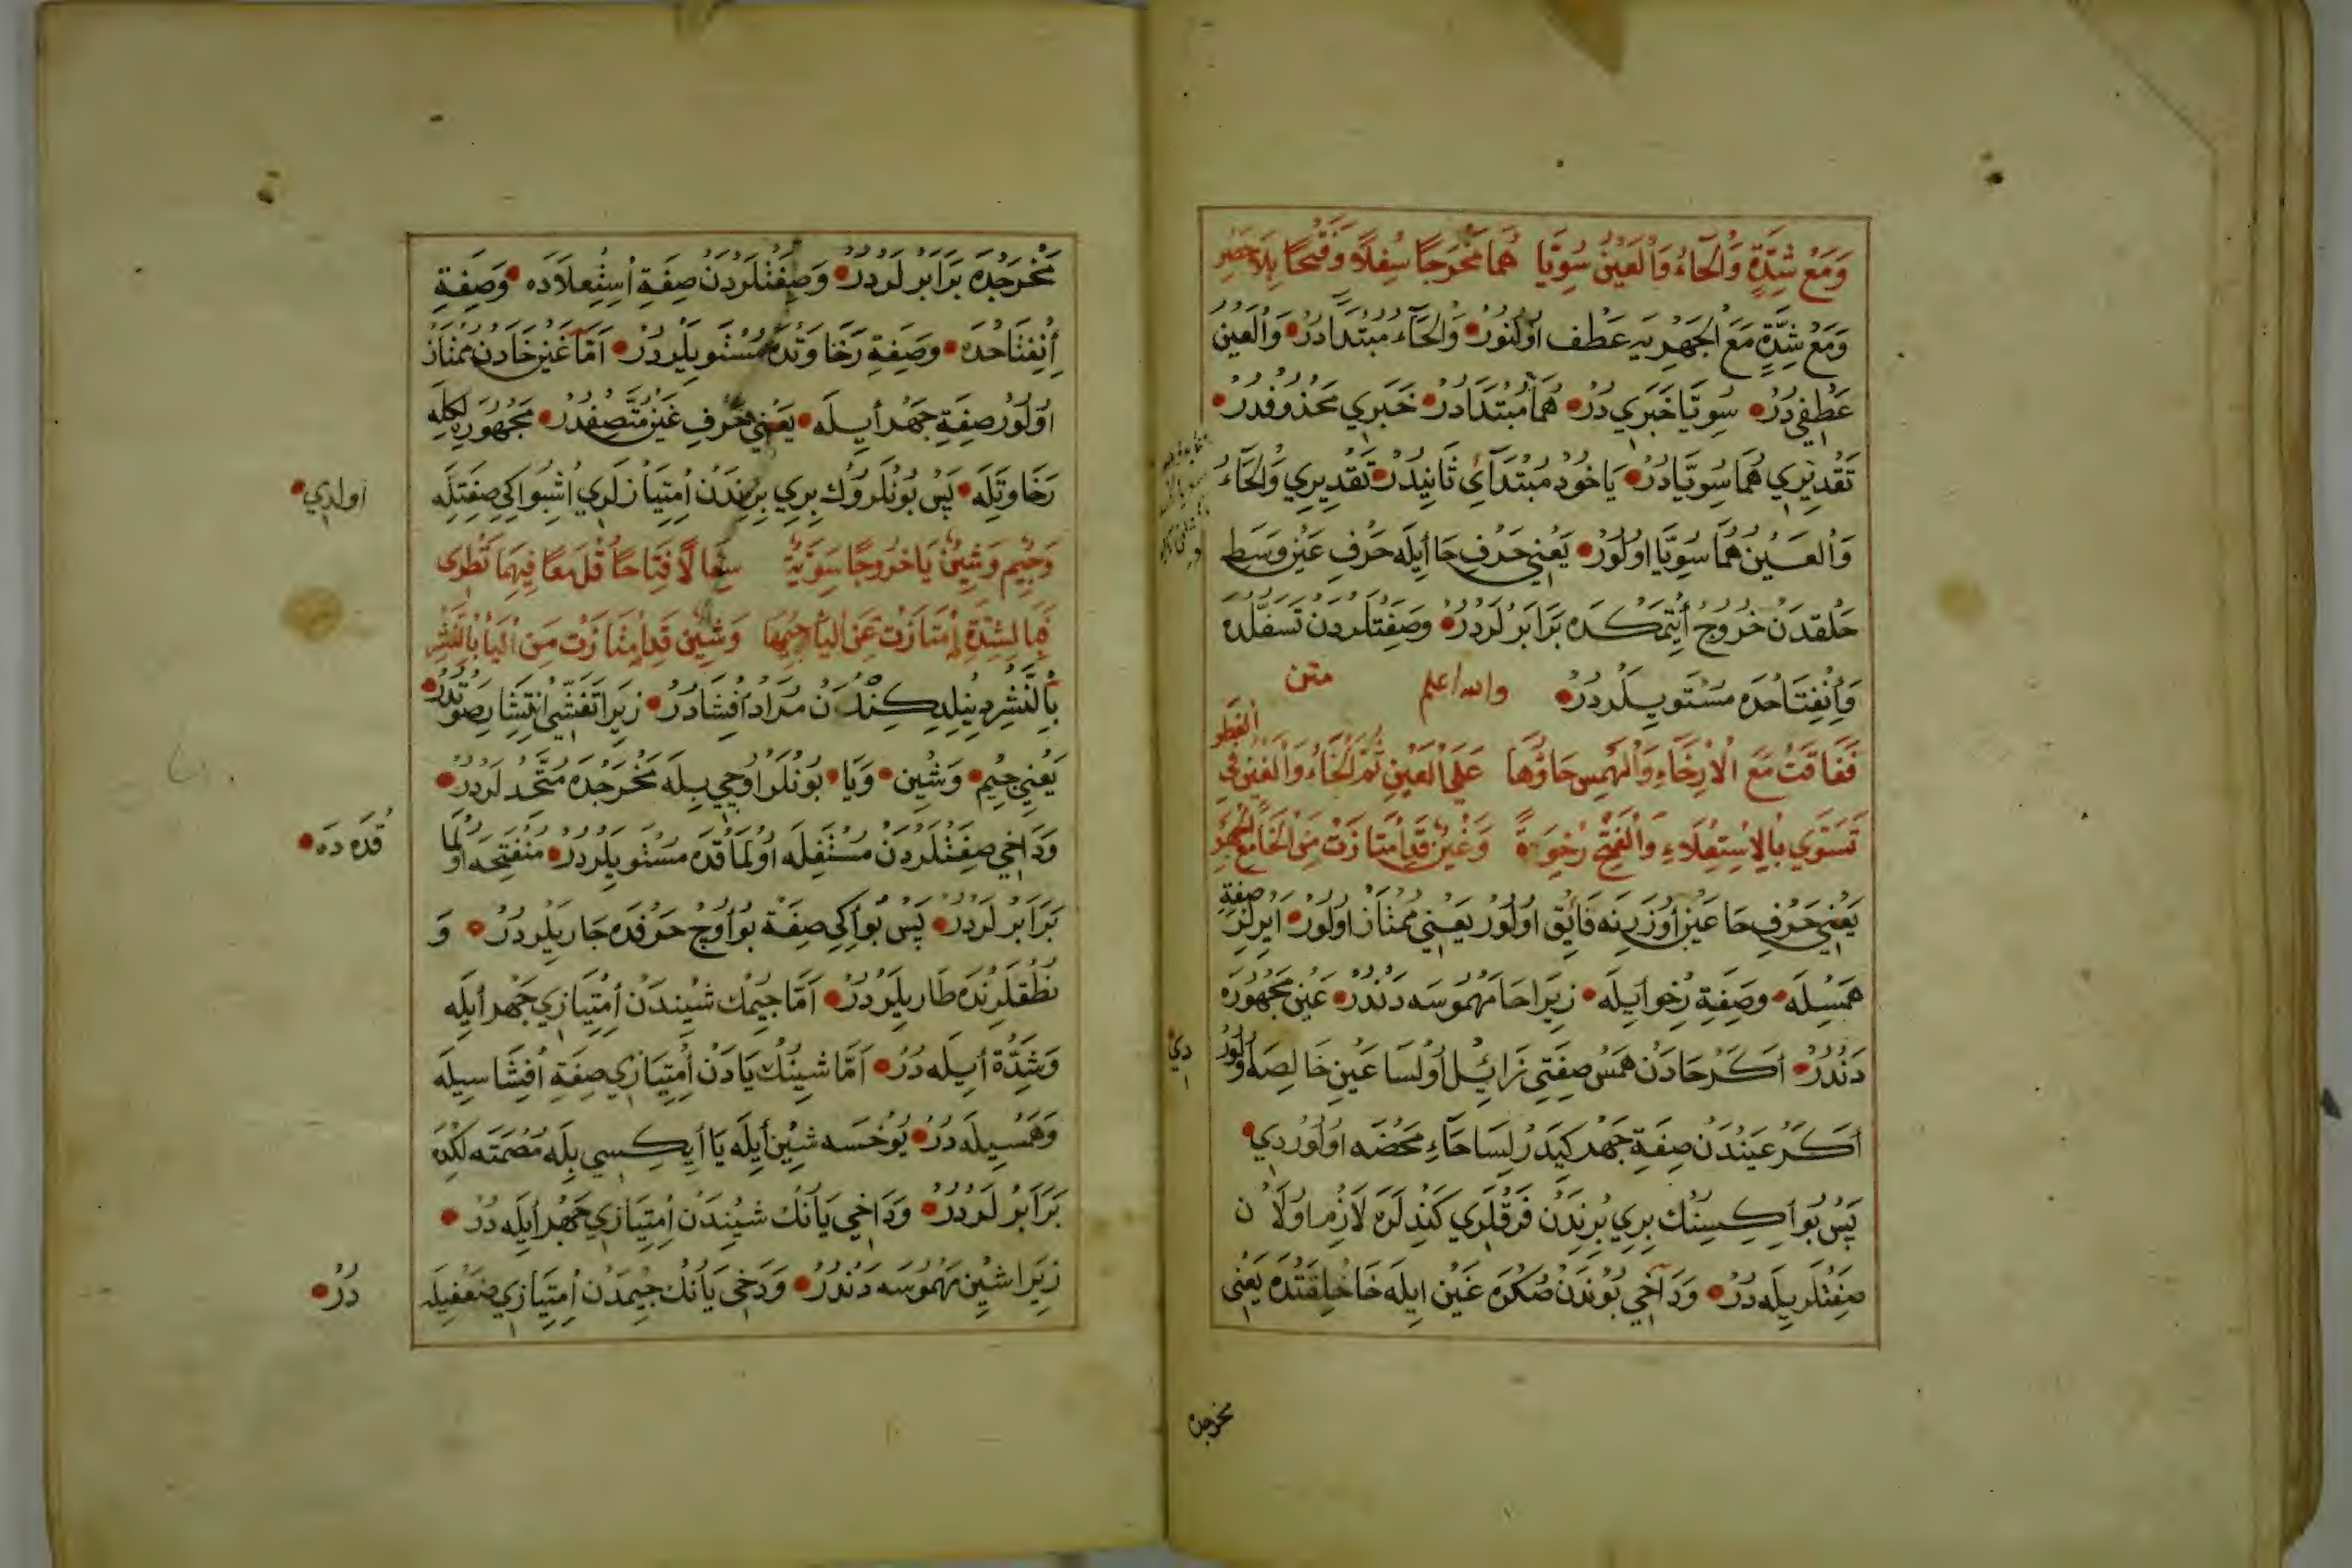 وَمَعْ شِدَّةٍ وَالْحَاءُ وَالْعَيْنُ سُوِّيَا هُمَا مَخْرَجًا سُفْلًا وَفَتْحًا بِلَا حَصْرِ
وَمَعْ شِدَّةٍ مَعَ الْجَهْرِيَه عَطْف اُولُنُورْ وَالْحَاءُ مُبْتَدَادُرْ وَالْعَيْنُ
عَطْفِي دُرْ سُوِّيَا خَبَرِي دُرْ هُمَا مُبْتَدَادُرْ خَبَرِي مَحْذُوفْدُرْ
تَقْدِيرِي هُمَا سُوِّيَادُرْ يَاخُودْ مُبْتَدَاءِ ثَانِيدُرْ تَقْدِيرِي وَالْحَاءُ
وَالْعَيْنُ هُمَا سُوِّيَا اُولُورْ يَعْنِي حَرْفِ حَا اَيلَه حَرْفِ عَيْن وَسَطِ
حَلْقدَنْ خُرُوجْ اَيتْمَكْدَه بَرَابَرْ لَرْدُرْ وَصِفَتْلَرْدَنْ تَسَفُّلْدَه
وَاِنْفِتَاحْدَه مُسْتَوِيلَرْدُرْ والله اعلم متن
فَفَاقَتْ مَعَ الْاِرْخَاءِ وَالْهَمْسِ حَاؤُهَا عَلَى الْعَيْنِ ثُمَّ الْخَاءُ وَالْغَيْنُ فِي
تَسْتَوِي بِالْاِسْتِعْلَاءِ وَالْفَتْحِ رُخْوَةً وَغَيْنٌ قَدِ امْتَازَتْ مِنَ الْخَا مَعَ الْجَهْرِ
يَعْنِي حَرْفِ حَا عَيْن اُوزَرِينَه فَائِقْ اُولُورْ يَعْنِي مُمْتَازْ اُولُورْ صِفَةِ
هَمْسِلَه وَصِفَةِ رِخْو اَيلَه زِيرَا حَا مَهْمُوسَه دَنْدُرْ عَيْن مَجْهُورَه
دَنْدُرْ اَكَرْ حَادَنْ هَمْس صِفَتِي زَائِلْ اُولْسَا عَيْنِ خَالِصَه اُولُورْ
اَكَرْ عَيْنْدَنْ صِفَةِ جَهْر كِيدَرْلِسَا حَاءِ مَحْضَه اُولُورْدِي
پَسْ بُو اَيكِسِنُكْ بِرِي بِرِنْدَنْ فَرْقْلَرِي كَنْدِلَرَه لَازِم اُولَانْ
صِفَتْلَرِيلَه دُرْ وَدَاخِي بُونْدَنْ صُكْرَه غَيْن ايلَه خَا خِلْقَتْدَه يَعْنِي
دِي
مخرجده
مَخْرَجْدَه بَرَابَرْ لَرْدُرْ وَصِفَتْلَرْدَنْ صِفَةِ اِسْتِعْلَادَه وَصِفَةِ
اِنْفِتَاحْدَه وَصِفَةِ رَخَاوَتْدَه مُسْتَوِيلَرْدُرْ اَمَّا غَيْن خَادَنْ مُمْتَازْ
اُولُورْ صِفَةِ جَهْر اَيلَه يَعْنِي حَرْفِ غَيْن مُتَّصِفْدُرْ مَجْهُورِيلَكِلَه
رَخَاوَتِيلَه پَسْ بُونْلَرُوكْ بِرِي بِرِنْدَنْ اِمْتِيَازْلَرِي اُشْبُو اِكِي صِفَتِلَه
وَجِيمٌ وَشِينٌ يَا خُرُوجًا سَوِيَّةٌ سِفَالًا فِتَاحًا قُلْ مَعًا فِيهِمَا تُطْوَى
فَبِالشِّدَّةِ امْتَازَتْ عَنِ الْيَاءِ جِيمُهَا وَشِينٌ قَدِ امْتَازَتْ مِنَ الْيَاءِ بِالنَّشْرِ
بِالنَّشْرِ دِينِلْدِيكِنْدَنْ مُرَادْ اِفْشَادُرْ زِيرَا تَفَشِّي اِنْتِشَارِ صَوْتْدُرْ
يَعْنِي جِيم وَشِين وَيَا بُونْلَرْ اُوچِي بِلَه مَخْرَجْدَه مُتَّحِدلَرْدُرْ
وَدَاخِي صِفَتْلَرْدَنْ مُسْتَفِلَه اُولْمَاقْدَه مُسْتَوِيلَرْدُرْ مُنْفَتِحَه اُولْمَا
بَرَابَرْ لَرْدُرْ پَسْ بُو اَكِي صِفَةْ بُو اُوچْ حَرْفْدَه جَارِيلَرْدُرْ وَ
نُطْقْلَرِنْدَه طَارِيلَرْدُرْ اَمَّا جِيمُكْ شِينْدَنْ اِمْتِيَازِي جَهْر اَيلَه
وَشِدَّةْ اَيلَه دُرْ اَمَّا شِينُكْ يَادَنْ اِمْتِيَازِي صِفَةِ اِفْشَاسِيلَه
وَهَمْسِيلَه دُرْ يُوخْسَه شِين اَيلَه يَا اَيكِيسِي بِلَه مُصْمَتَه لِكْدَه
بَرَابَرْ لَرْدُرْ وَدَاخِي يَانُكْ شِينْدَنْ اِمْتِيَازِي جَهْر اَيلَه دُرْ
زِيرَا شِين مَهْمُوسَه دَنْدُرْ وَدَخِي يَانُكْ جِيمْدَنْ اِمْتِيَازِي ضَعْفِيلَه
اولدي
قْدَه دَه
دُرْ